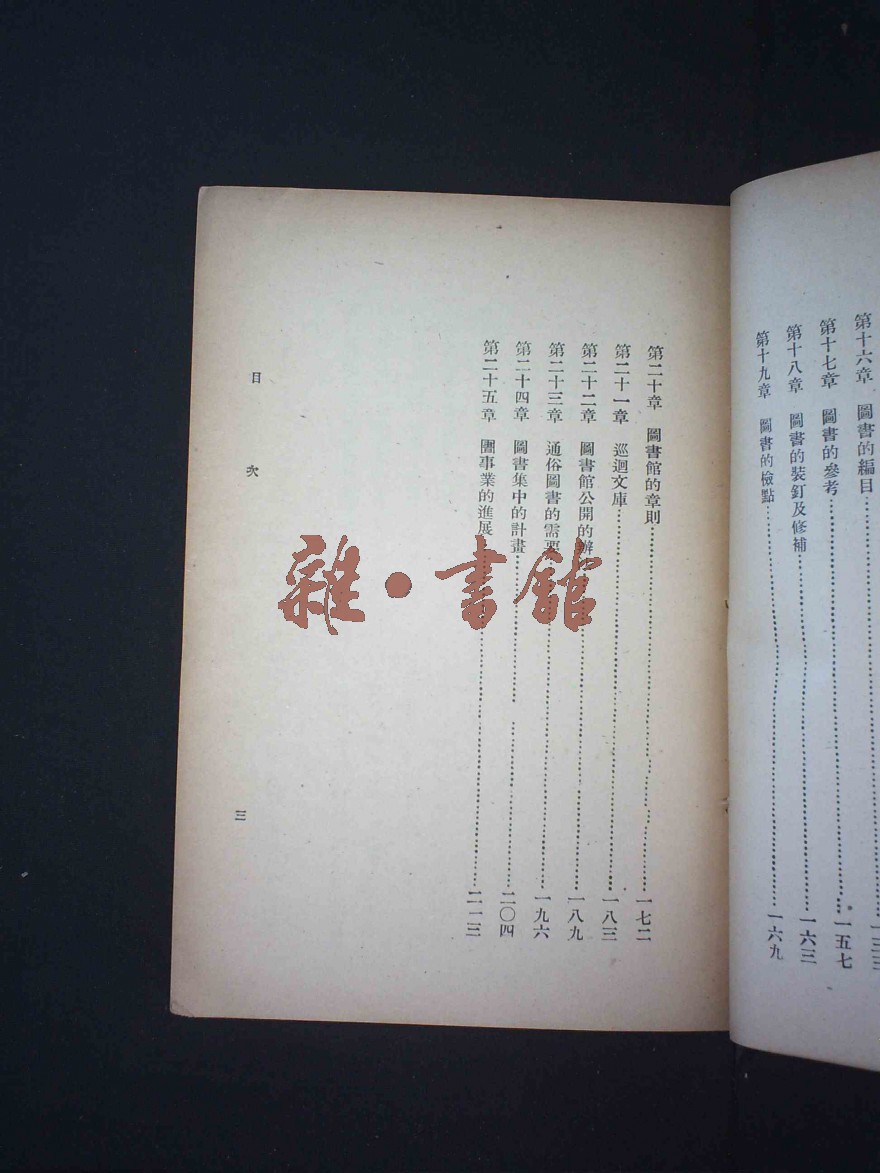 第十六章 圖書的編目 一三三
第十七章 圖書的參考 一五七
第十八章 圖書的裝釘及修補 一六三
第十九章 圖書的檢點 一六九
第二十章 圖書館的章則 一七二
第二十一章 巡迴文庫 一八三
第二十二章 圖書館公開的辦 一八九
第二十三章 通俗圖書的需要 一九六
第二十四章 圖書集中的計畫 二〇四
第二十五章 圕事業的進展 二一三
目次
三
雜·書館